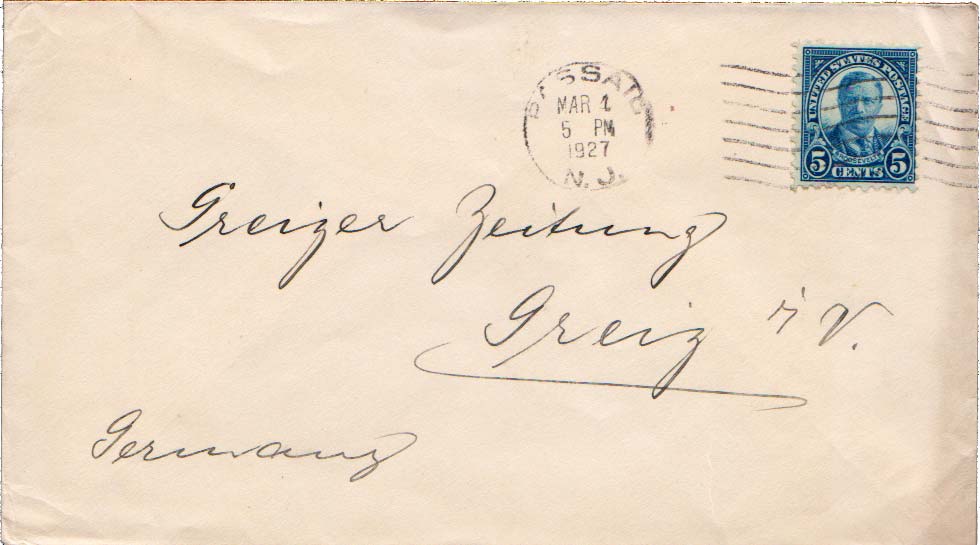 PASSAIC
MAR 1
5 PM
1927
N. J.
UNITED STATES POSTAGE
ROOSEVELT
5 CENTS 5
Greizer Zeitung
Greiz i/V.
Germany